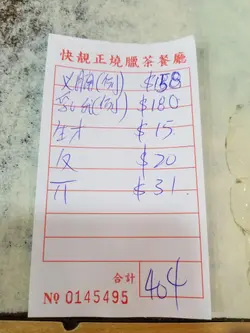 快靚正燒臘茶餐廳
乂腩(例) $158
(例) $180
$15
反 $20
$31
合計 404
№ 0145495